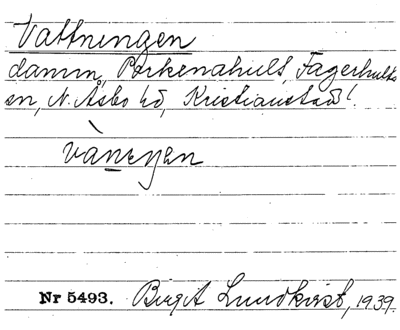 Vattningen
damm, Porkenahult, Fagerhults
sn, N. Åsbo hd, Kristianstad l.
Nr 5493. Birgit Lundkvist, 1939.